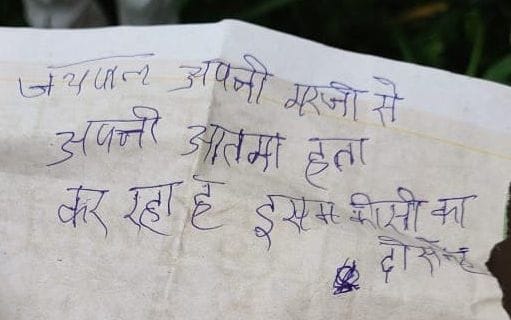 जयपाल अपनी मरजी से
अपनी आतमा हता
कर रहा है इसम कीसी का
दोस नह